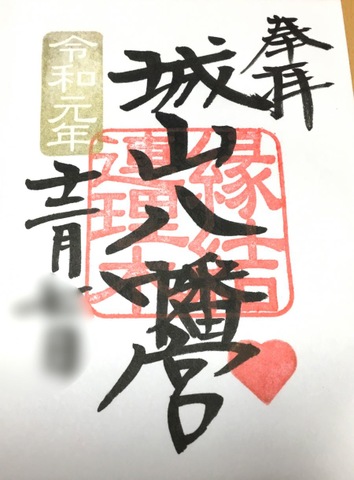 奉拝
城山八幡宮
縁結
連理木
令和元年
十二月